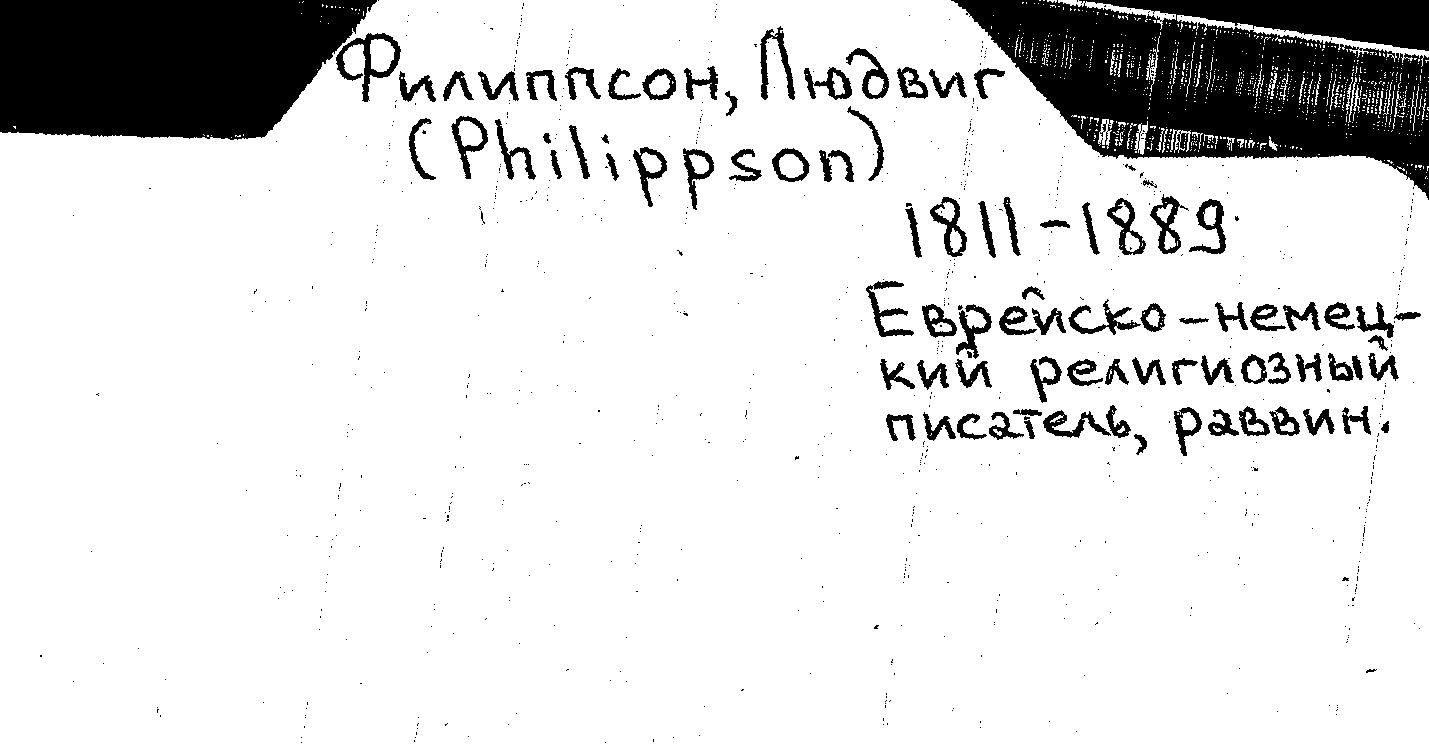 Филиппсон, Людвиг
(Philippson)
1811-1889
Еврейско-немец-
кий религиозный
писатель, раввин.